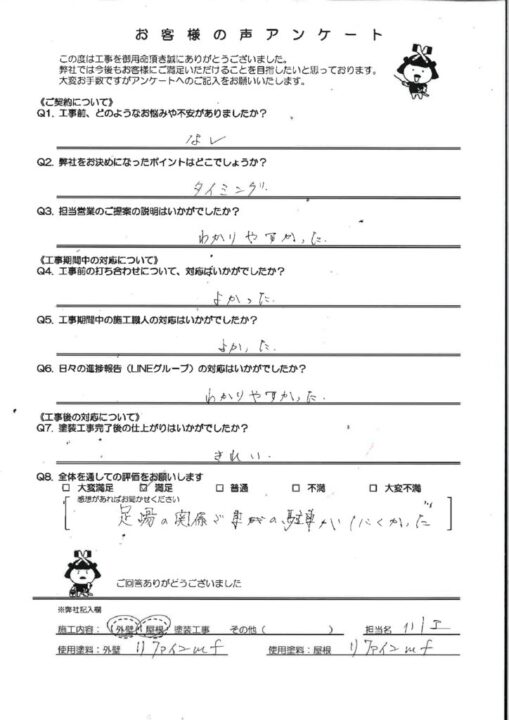 お客様の声アンケート
この度は工事を御用命頂き誠にありがとうございました。
弊社では今後もお客様にご満足いただけることを目指したいと思っております。
大変お手数ですがアンケートへのご記入をお願いいたします。
《ご契約について》
Q1. 工事前、どのようなお悩みや不安がありましたか?
なし
Q2. 弊社をお決めになったポイントはどこでしょうか?
タイミング
Q3. 担当営業のご提案の説明はいかがでしたか?
わかりやすかった.
《工事期間中の対応について》
Q4. 工事前の打ち合わせについて、対応はいかがでしたか?
よかった.
Q5. 工事期間中の施工職人の対応はいかがでしたか?
よかった.
Q6. 日々の進捗報告(LINEグループ)の対応はいかがでしたか?
わかりやすかった.
《工事後の対応について》
Q7. 塗装工事完了後の仕上がりはいかがでしたか?
きれい.
Q8. 全体を通しての評価をお願いします
□ 大変満足 ☑ 満足 □ 普通 □ 不満 □ 大変不満
感想があればお聞かせください
足場の関係で 駐車がしにくかった
ご回答ありがとうございました
※弊社記入欄
施工内容:(外壁・屋根)塗装工事 その他( ) 担当名
使用塗料:外壁 リファインMF 使用塗料:屋根 リファインMF